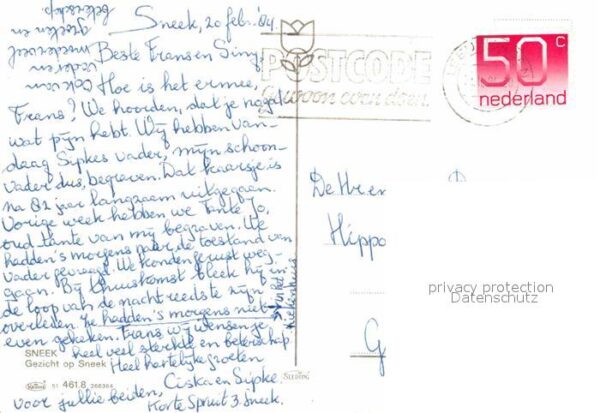 Sneek, 20 febr. '84.
Beste Frans en Sin
Hoe is het ermee,
Frans? We hoorden, dat je nogal
wat pijn hebt. Wij hebben van-
daag Sipkes vader, mijn schoon-
vader dus, begraven. Dat kaarsje is
na 82 jaar langzaam uitgegaan.
Vorige week hebben we Tante Jo,
oud tante van mij begraven. We
hadden 's morgens naar de toestand van
vader gevraagd. We konden gerust weg-
gaan. Bij thuiskomst bleek hij in
de loop van de nacht reeds te zijn
overleden. Ze hadden 's morgens niet
even gekeken. Frans, wij wensen je
heel veel sterkte en beterschap.
Heel hartelijke groeten
voor jullie beiden, Ciska en Sipke
Korte Spruit 3. Sneek.
ook van
iedereen
groeten en
beterschap
ziekenhuis
POSTCODE
Gewoon even doen.
50 c
nederland
De Hr en
Hippo
G
privacy protection
Datenschutz
SNEEK
Gezicht op Sneek
51 461.8